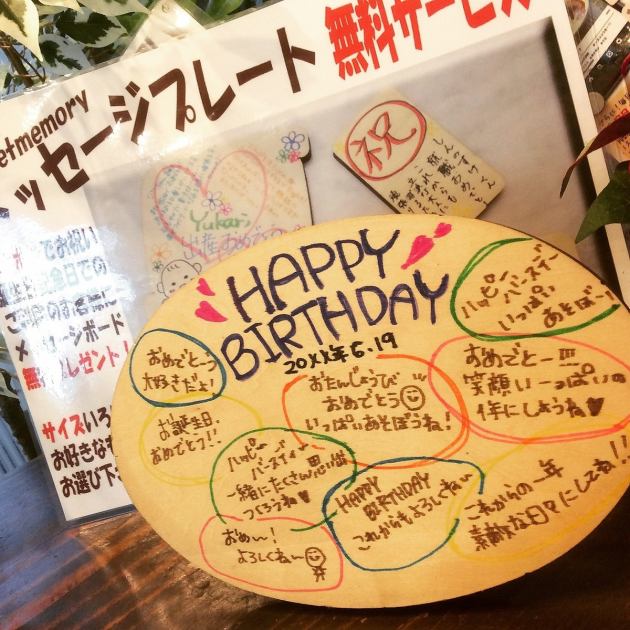 et memory
ッセージプレート 無料サービス
祝
Yukari
出産おめでとう
でお祝い
記念日での
ージボード
サイズいろ
お好きな
お選び下
HAPPY
BIRTHDAY
20XX年6.19
おめでとーう
大好きだよ!
お誕生日
おめでとう!!
おたんじょうび
おめでとう
いっぱいあそぼうね!
ハッピー
バースデー
いっぱい
あそぼー!
おめでとー!!!
笑顔いーっぱいの
1年にしようね♥
ハッピー
バースデイー
一緒にたくさん思い出
つくろうね♥
HAPPY
BIRTHDAY
これからもよろしくね〜
これからの一年
素敵な日々にしてね!!
おめー!
よろしくね〜